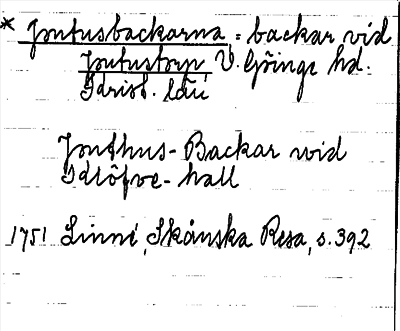 * Jontusbackarna = backar vid
Jontustorp V. Göinge hd.
Krist. län
Jonthus-Backar wid
Dröfve-hall
1751 Linné, Skånska Resa, s. 392